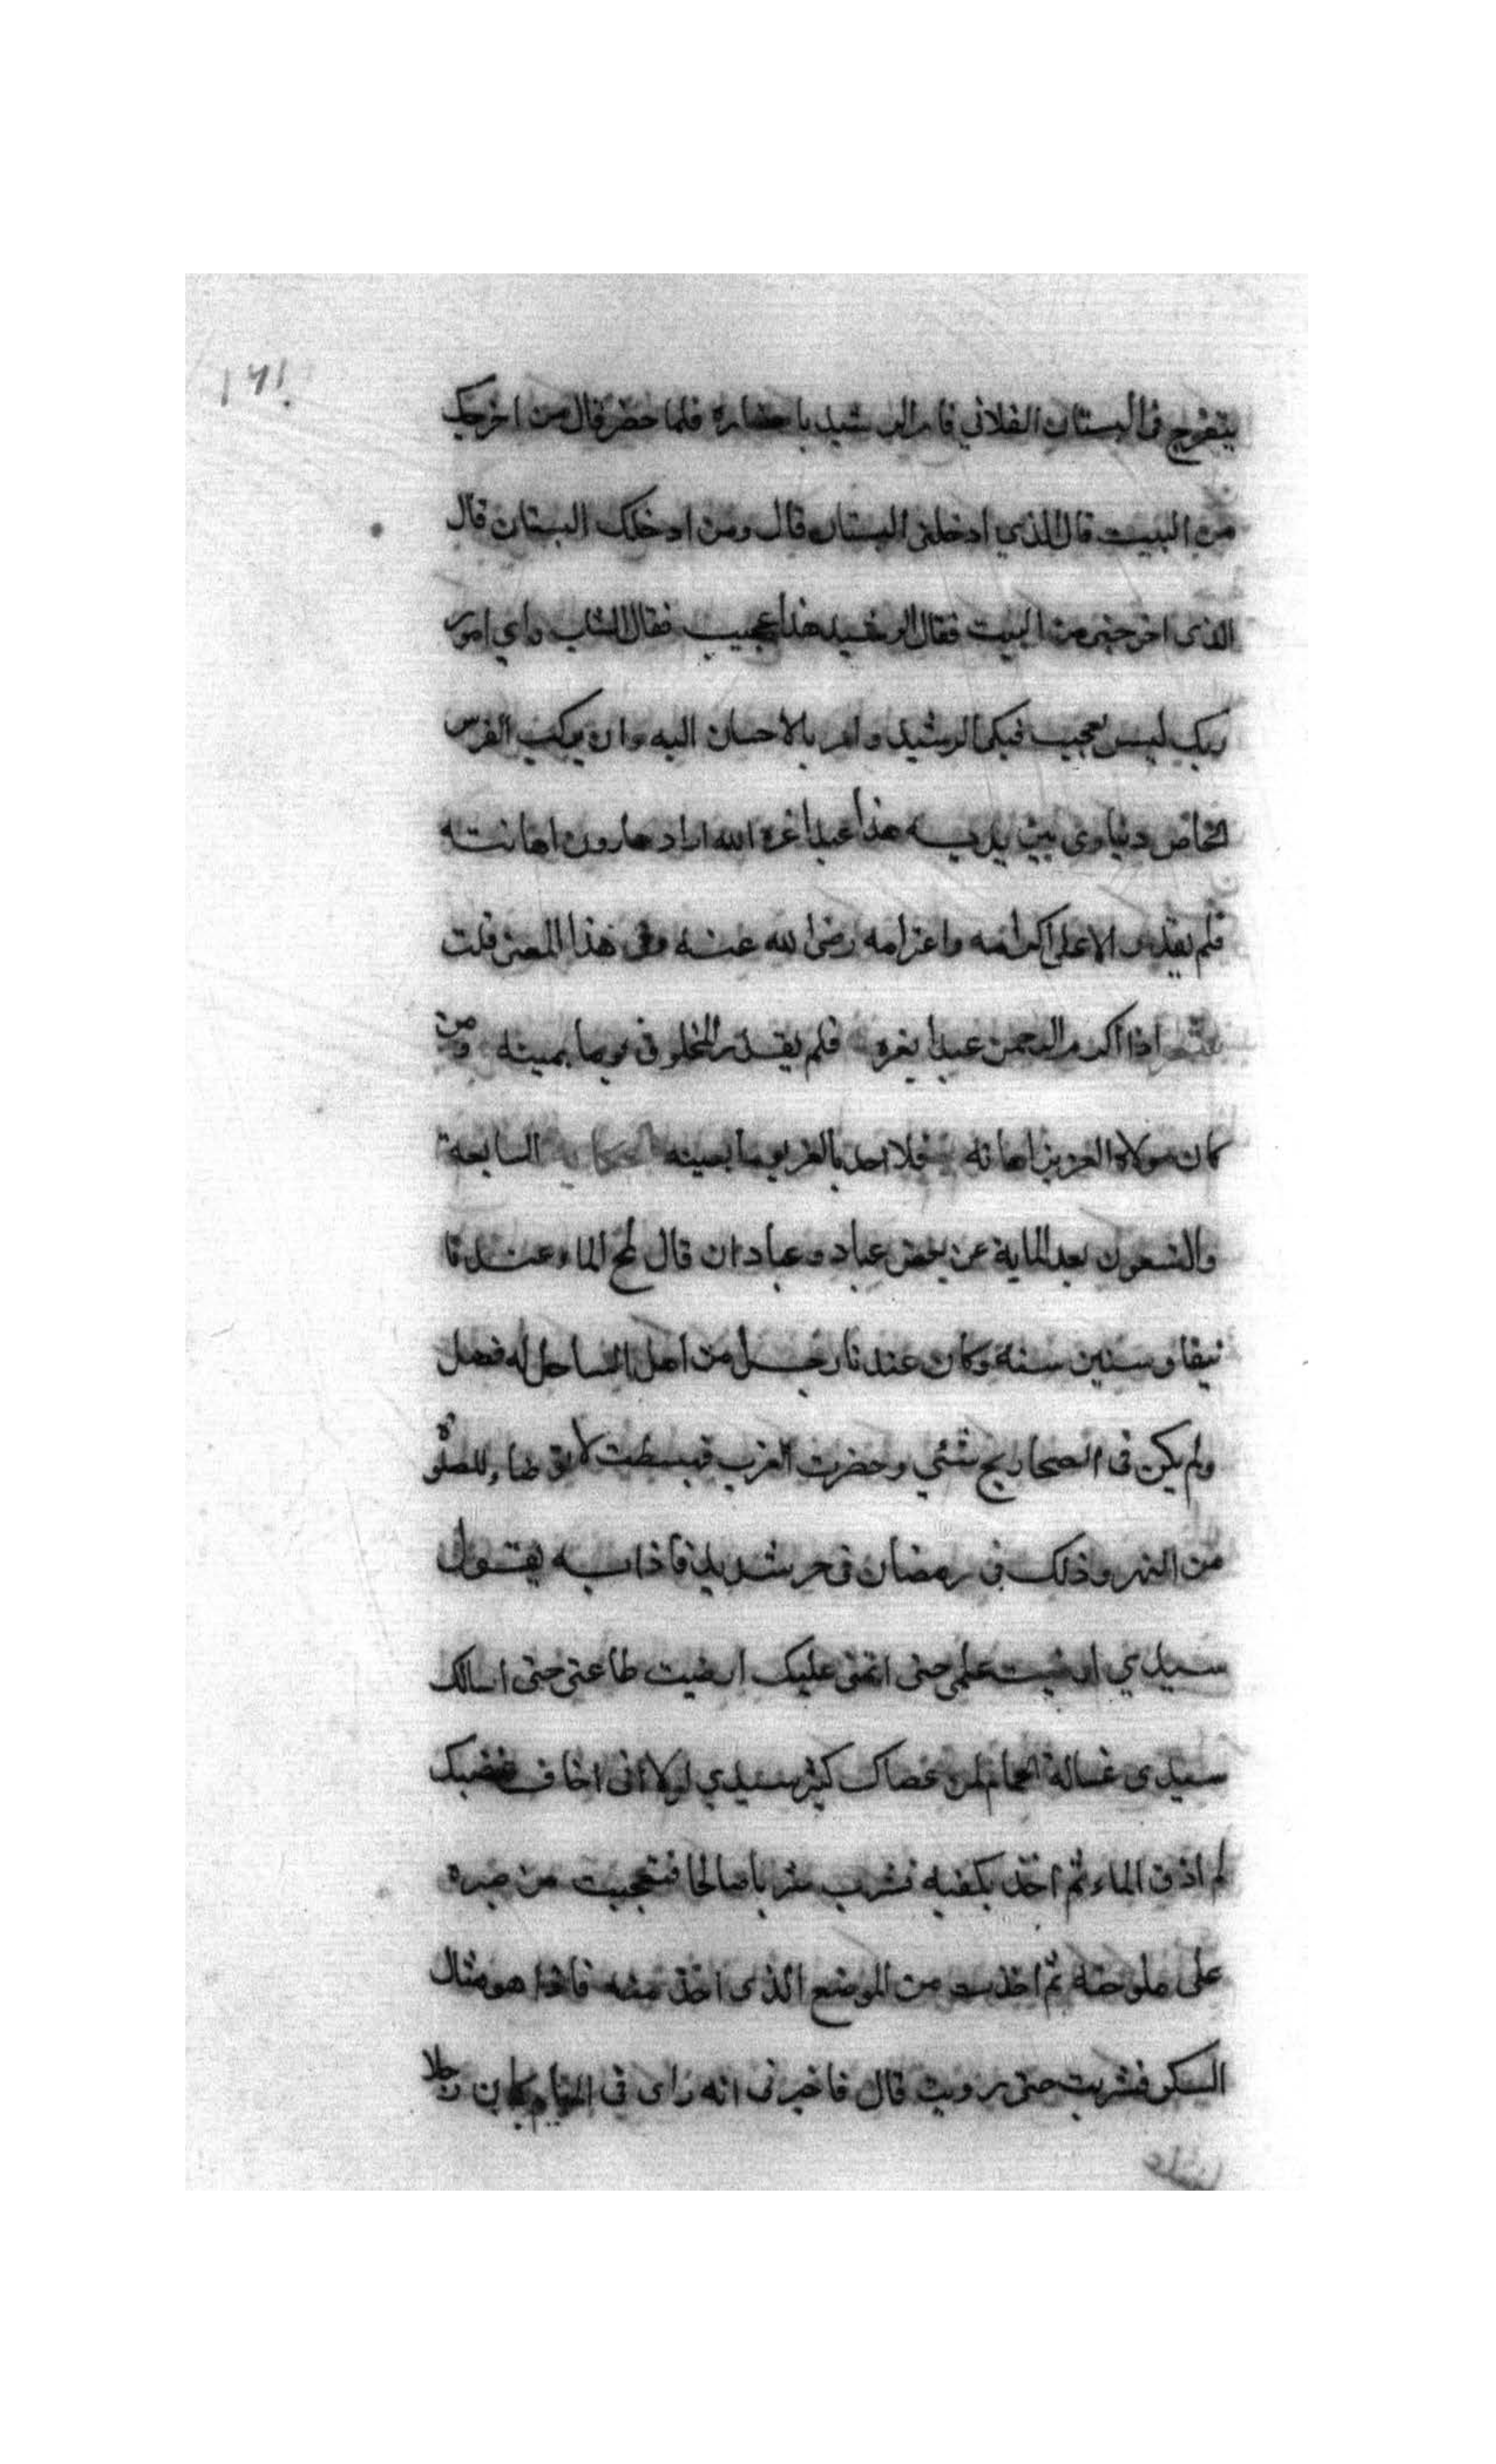 ١٦١
يتفرج فى البستان الفلاني فامر الرشيد باحضاره فلما حضر قال من اخرجك
من البيت قال الذي ادخلنى البستان قال ومن ادخلك البستان قال
الذى اخرجنى من البيت فقال الرشيد هذا عجيب فقال الشاب واي امور
ربك ليس بعجيب فبكى الرشيد وامر بالاحسان اليه وان يركب الفرس
الخاص وينادى بين يديه هذا عبد اعزه الله اراد هارون اهانته
فلم يقدر الا على اكرامه واعزامه رضى الله عنه وفى هذا المعنى قلت
شعر اذا اكرم الرحمن عبدا بعزه فلم يقدر المخلوق يوما يهينه ومن
كان مولاه العزيز اهانه فلا احد بالعز يوما يعينه الحكاية السابعة
والتسعون بعد الماية عن بعض عباد وعبادان قال ملح الماء عندنا
نيفا وستين سنة وكان عندنا رجل من اهل الساحل له فضل
ولم يكن فى الصحاريج شئي وحضرت المغرب فهبطت لاتوضاء للصلوٰة
من النهر وذلك فى رمضان فى حر شديد فاذا به يقول
سيدي ارضيت عملى حتى اتمنى عليك ارضيت طاعتى حتى اسالك
سيدى غسالة الحمام لمن عصاك كثير سيدي لولا انى اخاف غضبك
لم اذق الماء ثم اخذ بكفيه فشرب شربا صالحا فتعجبت من صبره
على ملوحته ثم اخذت من الموضع الذى اخذ منه فاذا هو مثال
السكر فشربت حتى رويت قال فاخبرنى انه راى فى المنام كان رجلا